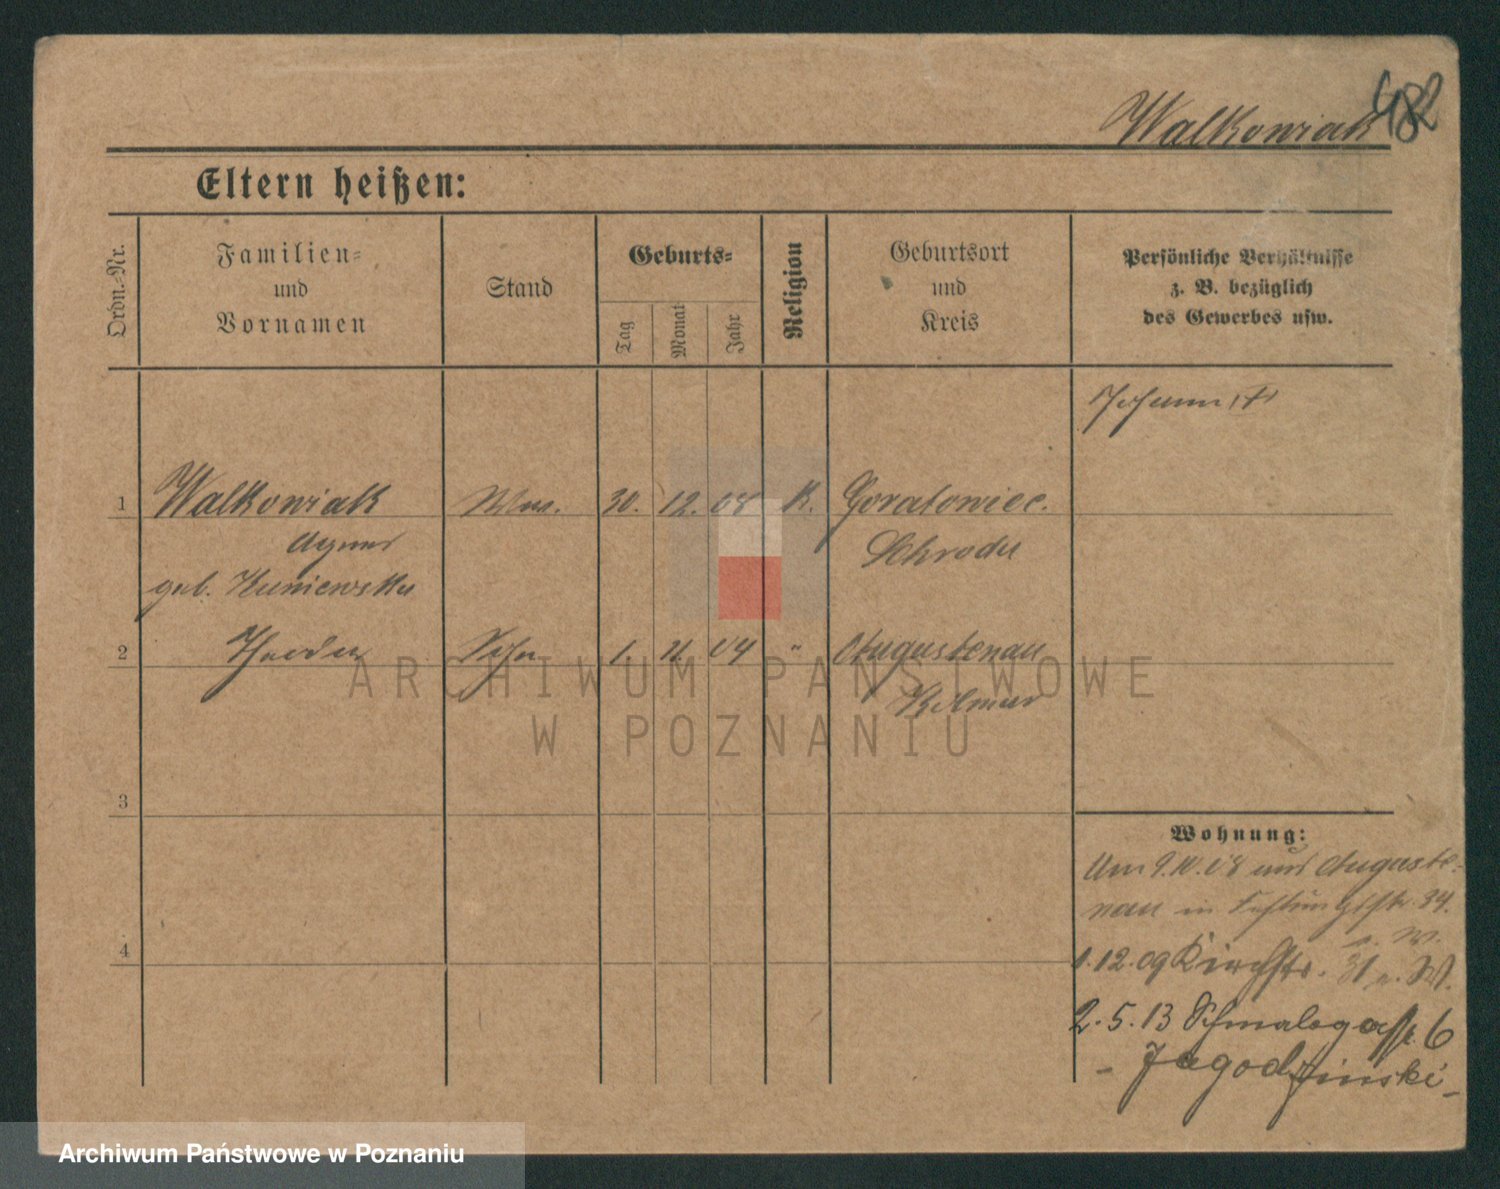 Walkowiak 482
Eltern heißen:
Ordn.-Nr.
Familien-
und
Vornamen
Stand
Geburts-
Tag
Monat
Jahr
Religion
Geburtsort
und
Kreis
Persönliche Verhältnisse
z. B. bezüglich
des Gewerbes usw.
1 Walkowiak Ww. 30. 12. K.
Agnes Schroda
geb.
2 Sohn 1. 04 " Augustenau
Kolmar
3
Wohnung:
Am 9.10.08 aus Auguste-
nau in 34.
4
1.12.09 Kirchstr. 31 n. W.
2.5.13 Schmalegasse 6
- Jagodzinski -
ARCHIWUM PAŃSTWOWE
W POZNANIU
Archiwum Państwowe w Poznaniu